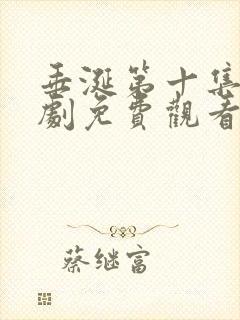 垂涎第十集
劇免費觀看
蔡继富